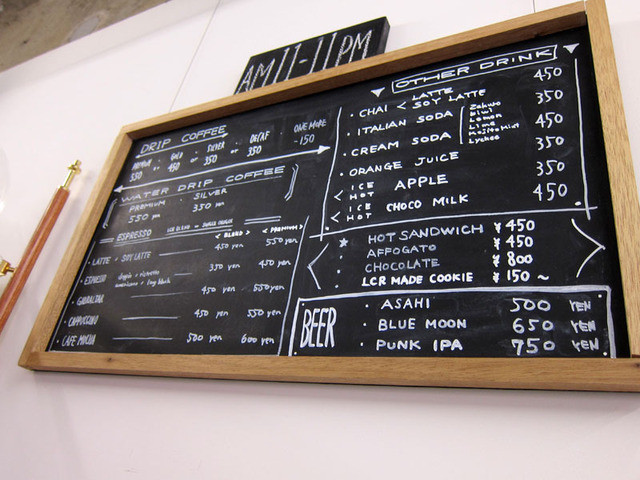 AM11-11PM
DRIP COFFEE
PREMIUM GOLD SILVER DECAF ONE MORE
550 or 450 or 350 or 350 -150
WATER DRIP COFFEE
PREMIUM SILVER
550 yen 350 yen
ESPRESSO
<BLEND> <PREMIUM>
LATTE SOY LATTE 450 yen 550 yen
ESPRESSO 350 yen 450 yen
GIBRALTAR 450 yen 550 yen
CAPPUCCINO 450 yen 550 yen
CAFE MOCHA 500 yen 600 yen
OTHER DRINK
CHAI < LATTE SOY LATTE 450
ITALIAN SODA 350
CREAM SODA 450
Kiwi
Lemon
Lime
Lychee
ORANGE JUICE 350
ICE HOT APPLE 350
ICE HOT CHOCO MILK 450
HOT SANDWICH ¥450
AFFOGATO ¥450
CHOCOLATE ¥800
LCR MADE COOKIE ¥150~
BEER
ASAHI 500 YEN
BLUE MOON 650 YEN
PUNK IPA 750 YEN